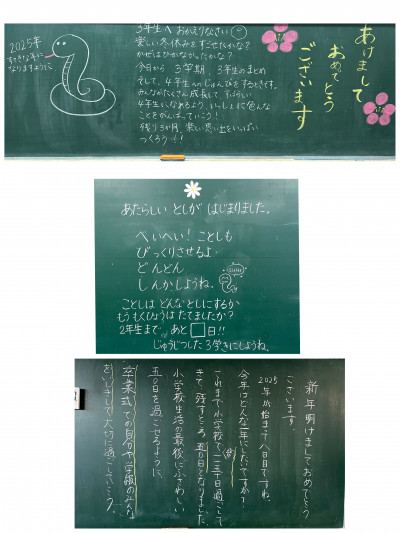 2025年
すてきな年に
なりますように
3年生へ おかえりなさい
楽しい冬休みをすごせたかな?
かぜはひかなかったかな?
今日から 3学期、3年生のまとめ
そして、4年生へのじゅんびをするときです。
みんながたくさん成長して、すばらしい
4年生になれるよう、いっしょに色んな
ことをがんばっていこう!
残り3か月、楽しい思い出をいっぱい
つくろう!!
あけまして
おめでとう
ございます
あたらしい としが はじまりました。
へいへい! ことしも
びっくりさせるよ
どんどん
しんかしようね。
ことしは どんな としにするか
もうもくひょうは たてましたか?
2年生まで、あと□日!!
じゅうじつした3学きにしようね。
新年明けましておめでとう
ございます。
2025年が始まって八日目ですね。
今年はどんな一年にしたいですか?
これまで小学校で一一三十日過ごして
きて、残すところ、五〇日となりました。
小学校生活の最後にふさわしい
五〇日を過ごせるように、
卒業式での自分や学級のみんな
をいしきして大切に過ごしていこう。